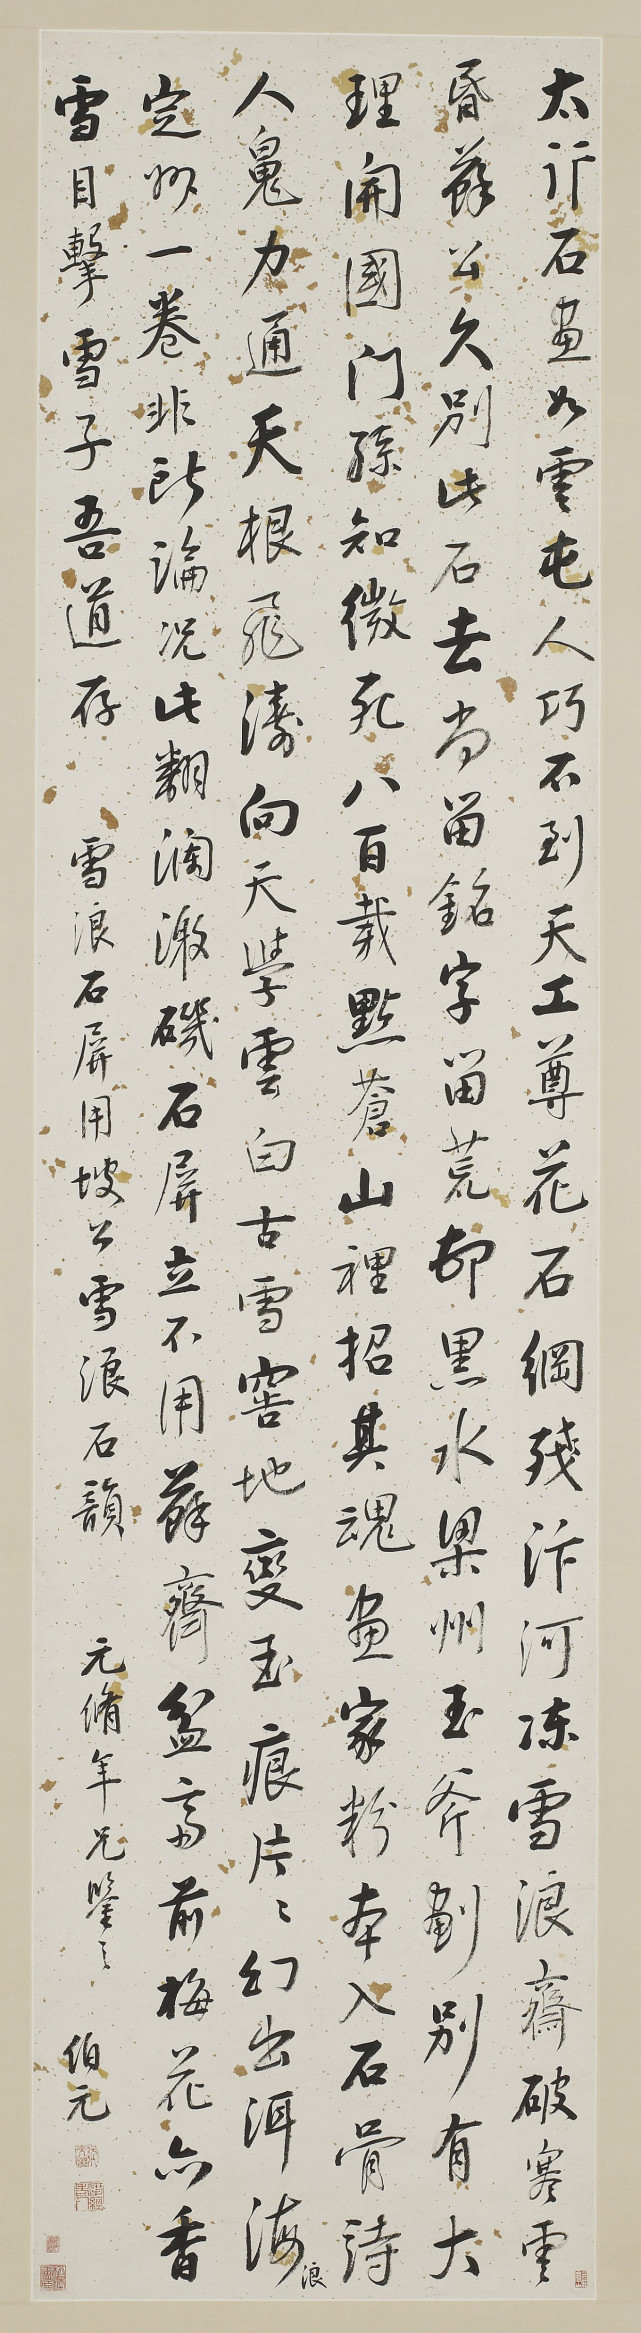 太行石畫如雲屯人巧不到天工尊花石綱殘汴河凍雪浪齋破寒雲
昏蘇公久別此石去尚留銘字留荒邨黑水梁州玉斧劃別有大
理開國門孫知微死八百載點蒼山裡招其魂畫家粉本入石骨詩
人鬼力通天根飛濤向天學雲白古雪窖地變玉痕片〻幻出洱海浪
定州一卷非所論況此翻瀾激磯石屏立不用蘇齋盆齋前梅花亦香
雪目擊雪子吾道存 雪浪石屏用坡公雪浪石韻 元脩年兄鑒之 伯元